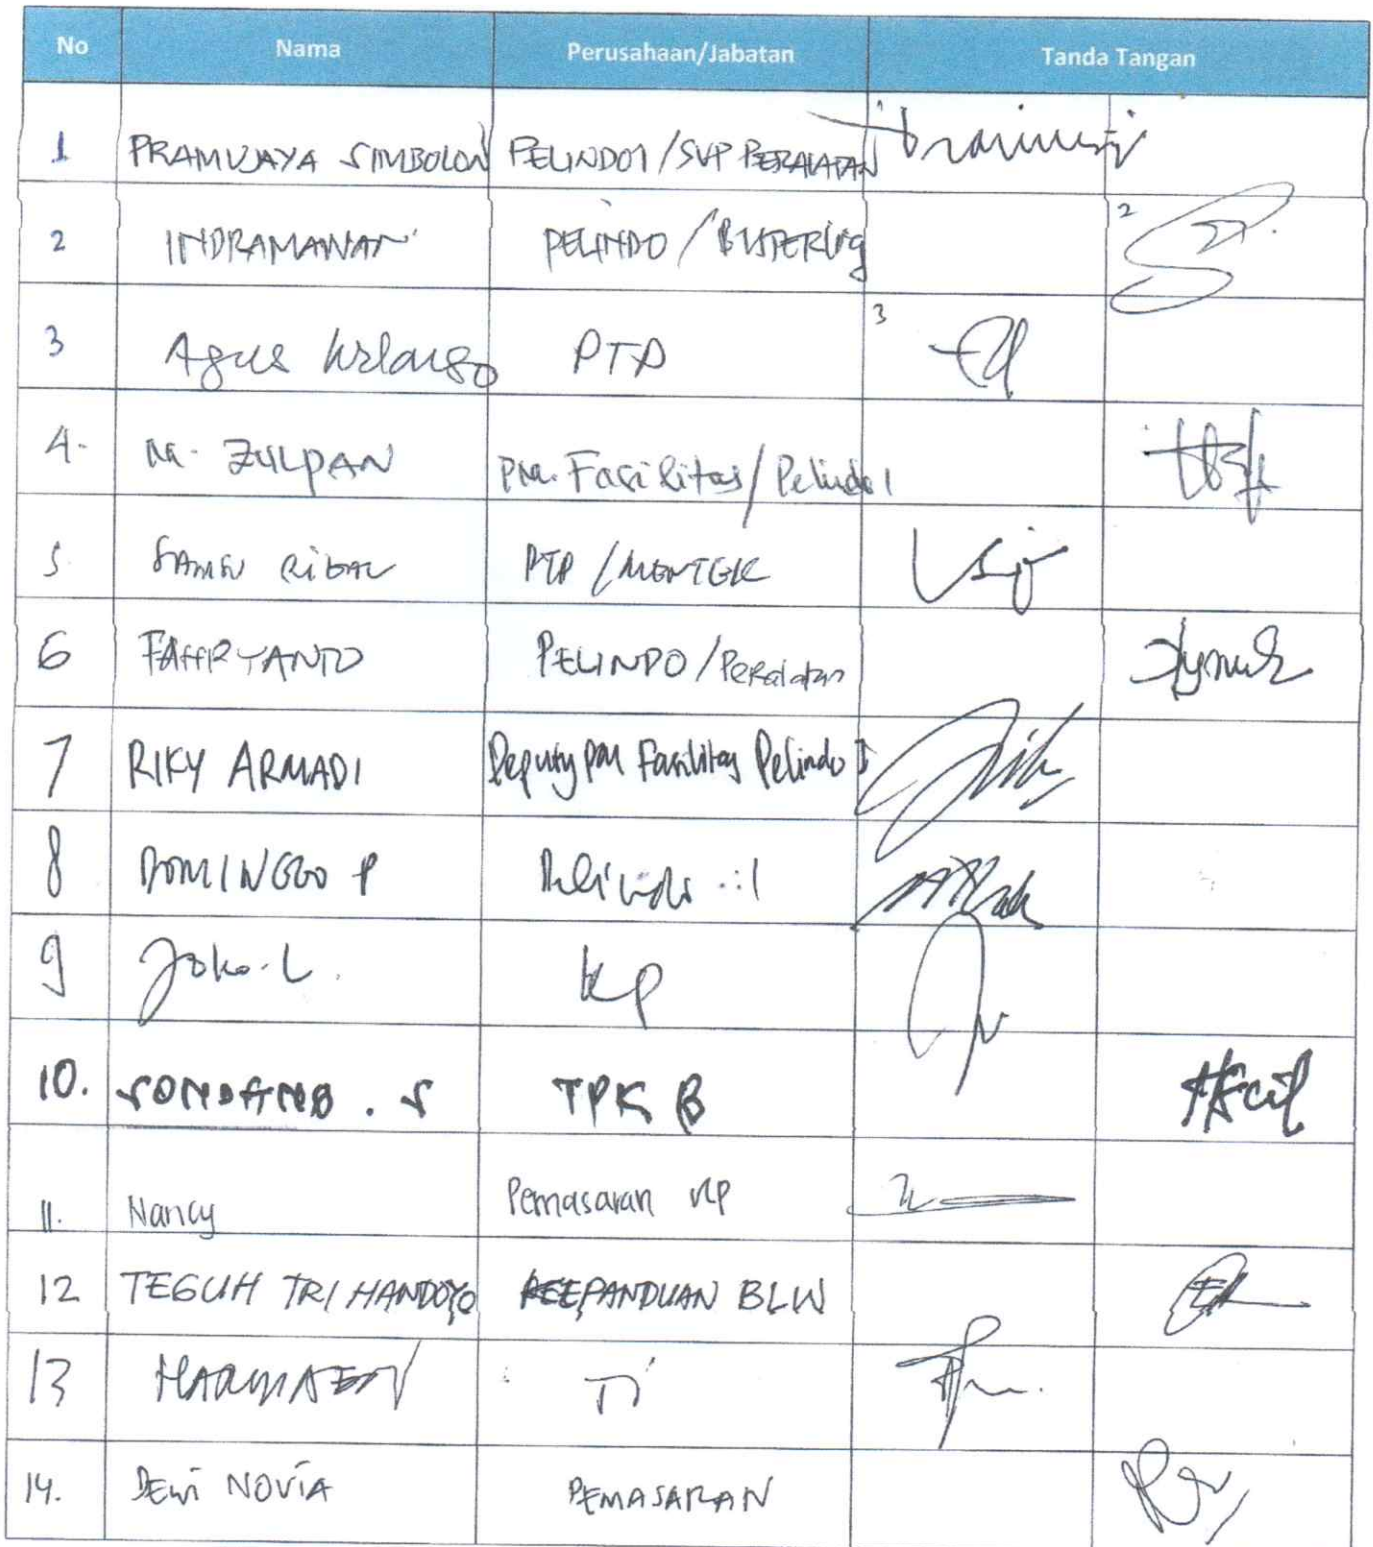 No Nama Perusahaan/Jabatan Tanda Tangan
1 PRAMUJAYA SIMBOLON PELINDO1/SVP PERALATAN
2 INDRAMAWAN PELINDO / 2
3 Agus PTP 3
4. M. ZULPAN PM. Fasilitas/Pelindo 1
5. PTP /
6 FAHRYANTO PELINDO/Peralatan
7 RIKY ARMADI Deputy PM Fasilitas Pelindo I
8 DOMINGGO P Pelindo 1
9 Joko. L. KP
10. SONDANG . S TPK B
11. Nancy Pemasaran KP
12 TEGUH TRI HANDOYO KEPANDUAN BLW
13 TI
14. DEWI NOVIA PEMASARAN